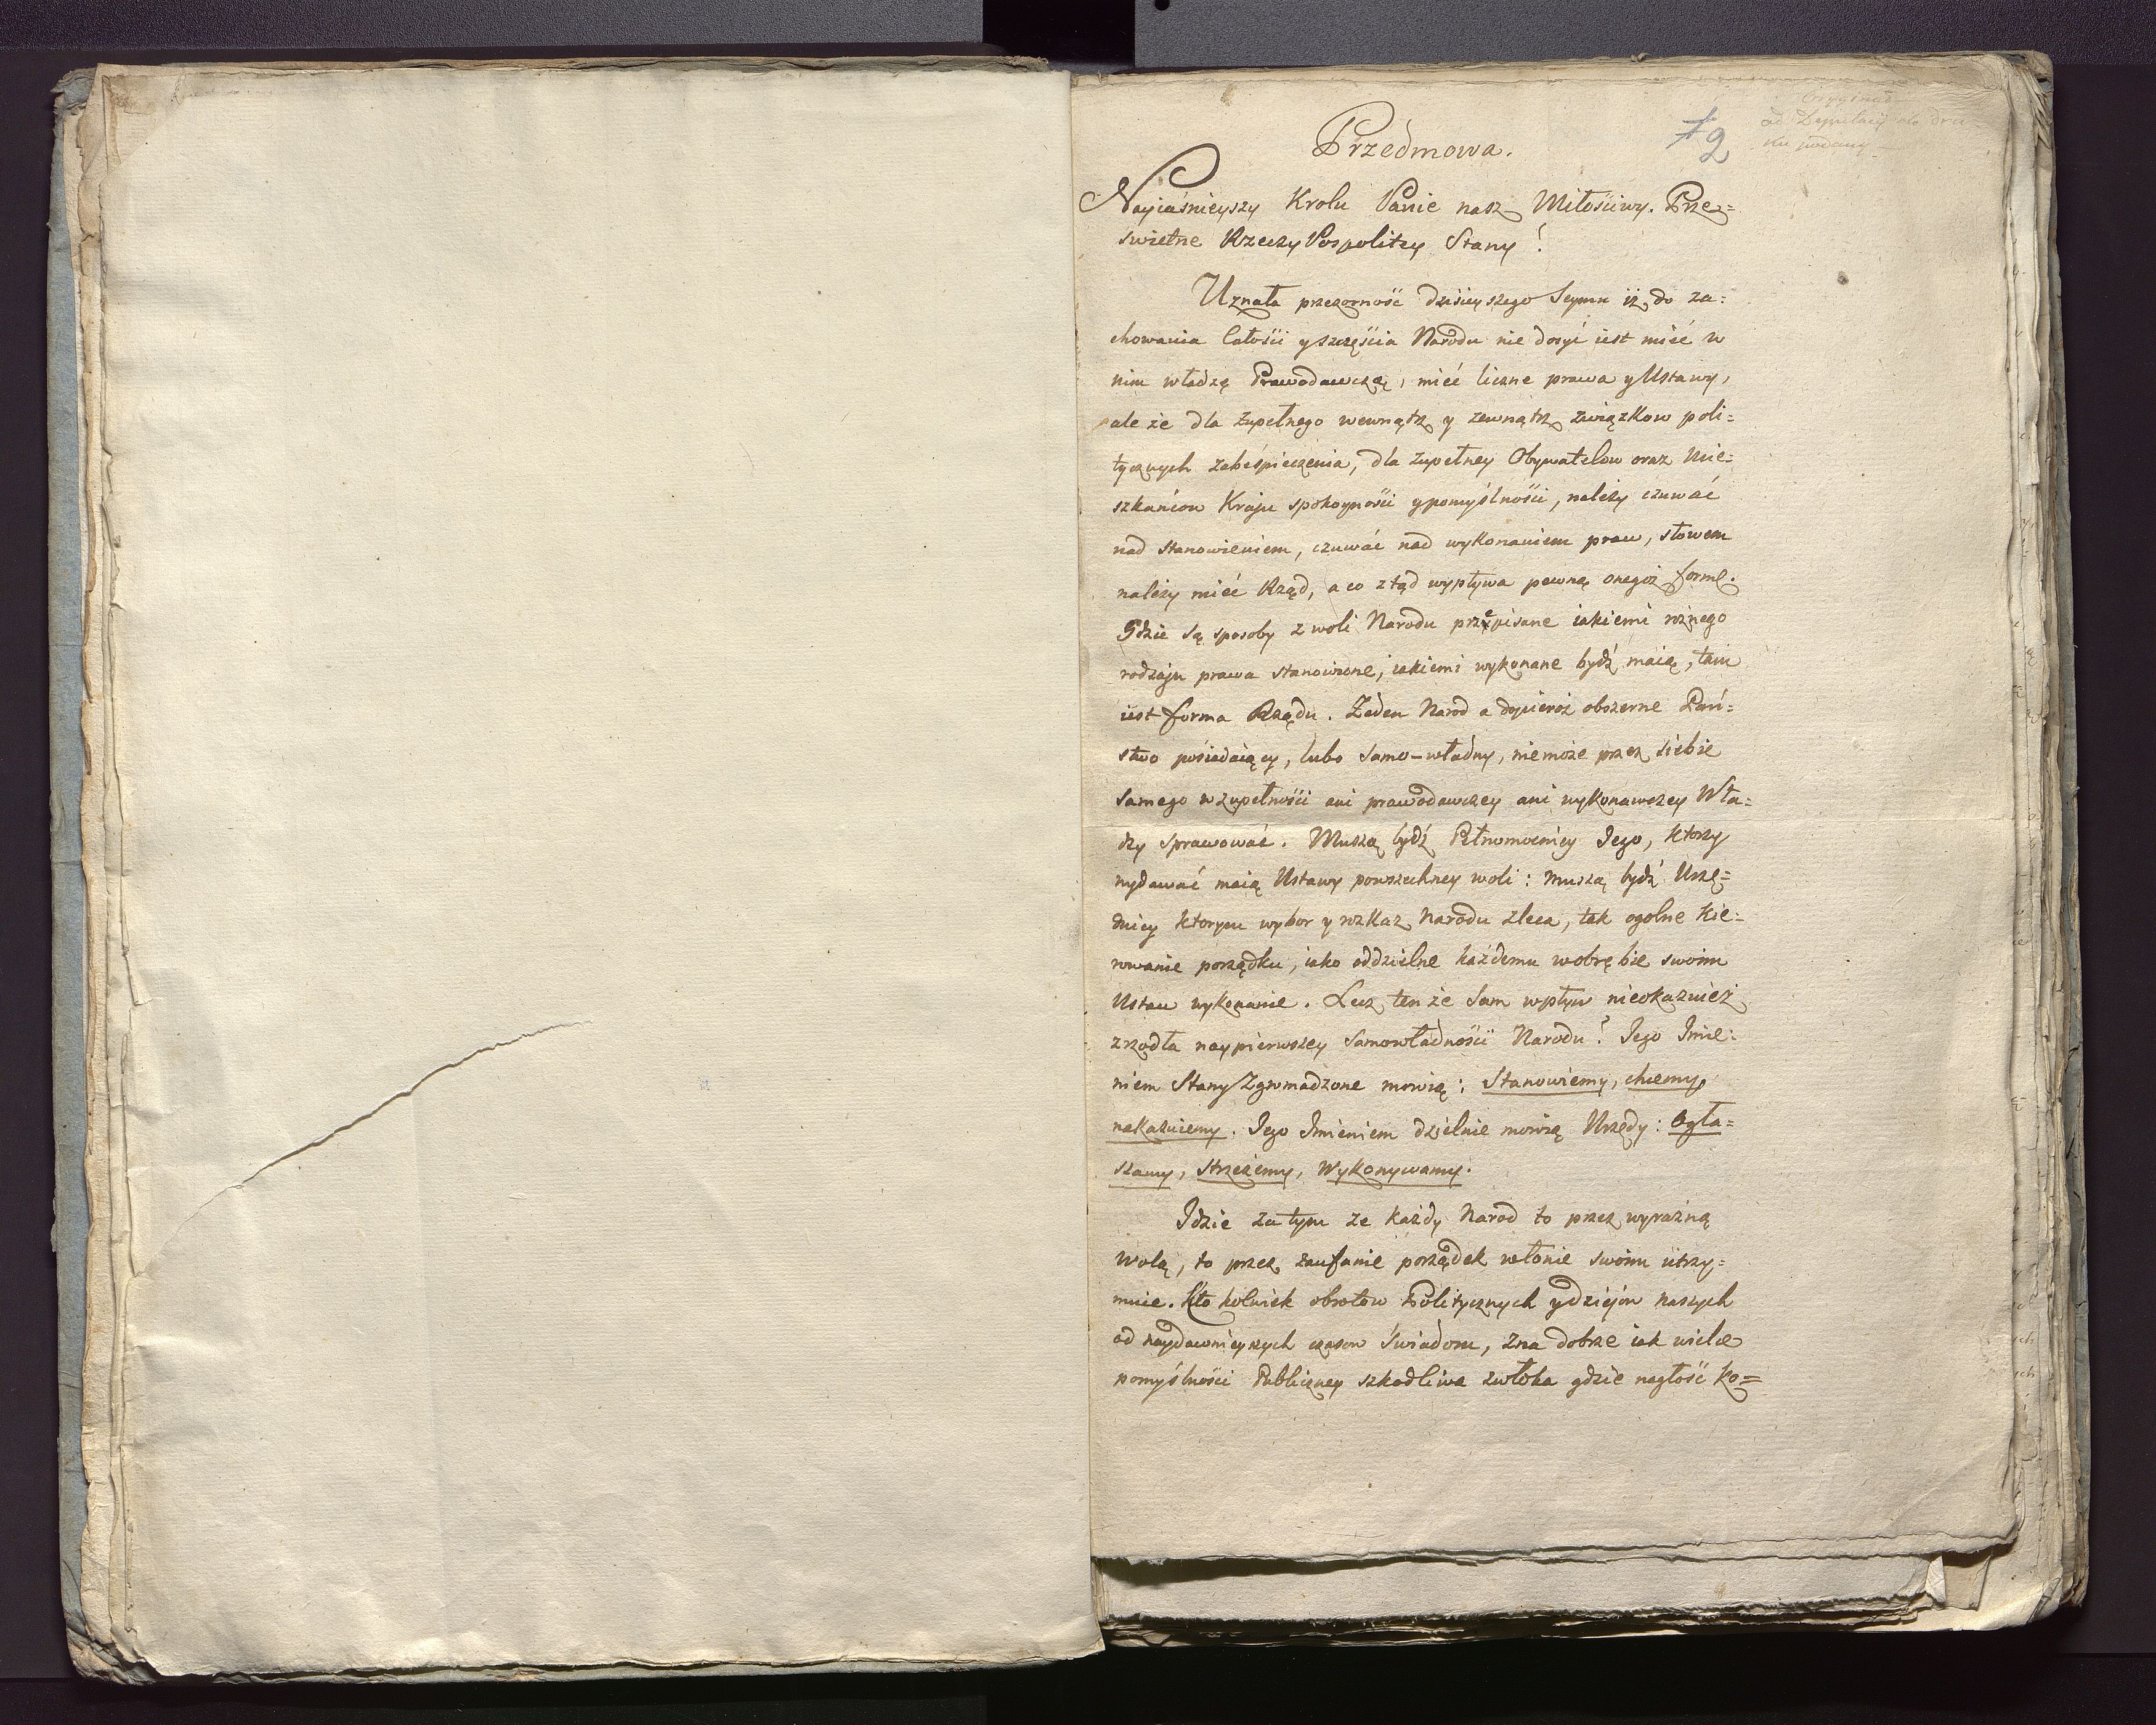 Oryginał
od Deputacij do dru-
ku podany
72
Przedmowa.
Nayiaśnieyszy Krolu Panie nasz Miłościwy. Prze=
swietne Rzeczy Pospolitey Stany!
Uznała przezorność dzisieyszego Seymu iż do za=
chowania całości y szczęścia Narodu nie dosyć iest mieć w
nim władzę Prawodawczą, mieć liczne prawa y Ustawy,
ale że dla zupełnego wewnątrz y zewnątrz związkow poli=
tycznych zabespieczenia, dla zupełney Obywatelow oraz Mie=
szkańcow Kraju spokoyności y pomyślności, należy czuwać
nad stanowieniem, czuwać nad wykonaniem praw, słowem
należy mieć Rząd, a co ztąd wypływa pewną onegoż formę.
Gdzie są sposoby z woli Narodu przepisane iakiemi rożnego
rodzaju prawa stanowione, iakiemi wykonane bydź maią, tam
iest forma Rządu. Żeden Narod a dopieroż obszerne Pań=
stwo posiadaiący, lubo samo-władny, nie może przez siebie
samego w zupełności ani prawodawczey ani wykonawczey Wła=
dzy sprawować. Muszą bydź Pełnomocnicy Jego, ktorzy
wydawać maią Ustawy powszechney woli: muszą bydź Urzę=
dnicy ktorym wybor y rozkaz Narodu zleca, tak ogolne kie=
rowanie porządku, iako oddzielne każdemu w obrębie swoim
Ustaw wykonanie. Lecz ten że sam wpływ nieokazuież
zrzodła naypierwszey samowładności Narodu? Jego Imie=
niem Stany Zgromadzone mowią: Stanowiemy, chcemy,
nakazuiemy. Jego Imieniem dzielnie mowią Urzędy: Ogła=
szamy, strzeżemy, Wykonywamy.
Idzie za tym ze każdy Narod to przez wyrazną
wolą, to przez zaufanie porządek w łonie swoim utrzy=
muie. Kto kolwiek obrotow Politycznych y dziejow naszych
od naydawnieyszych czasow świadom, zna dobrze iak wiele
pomyślności Publiczney szkodliwa zwłoka gdzie nagłość ko=